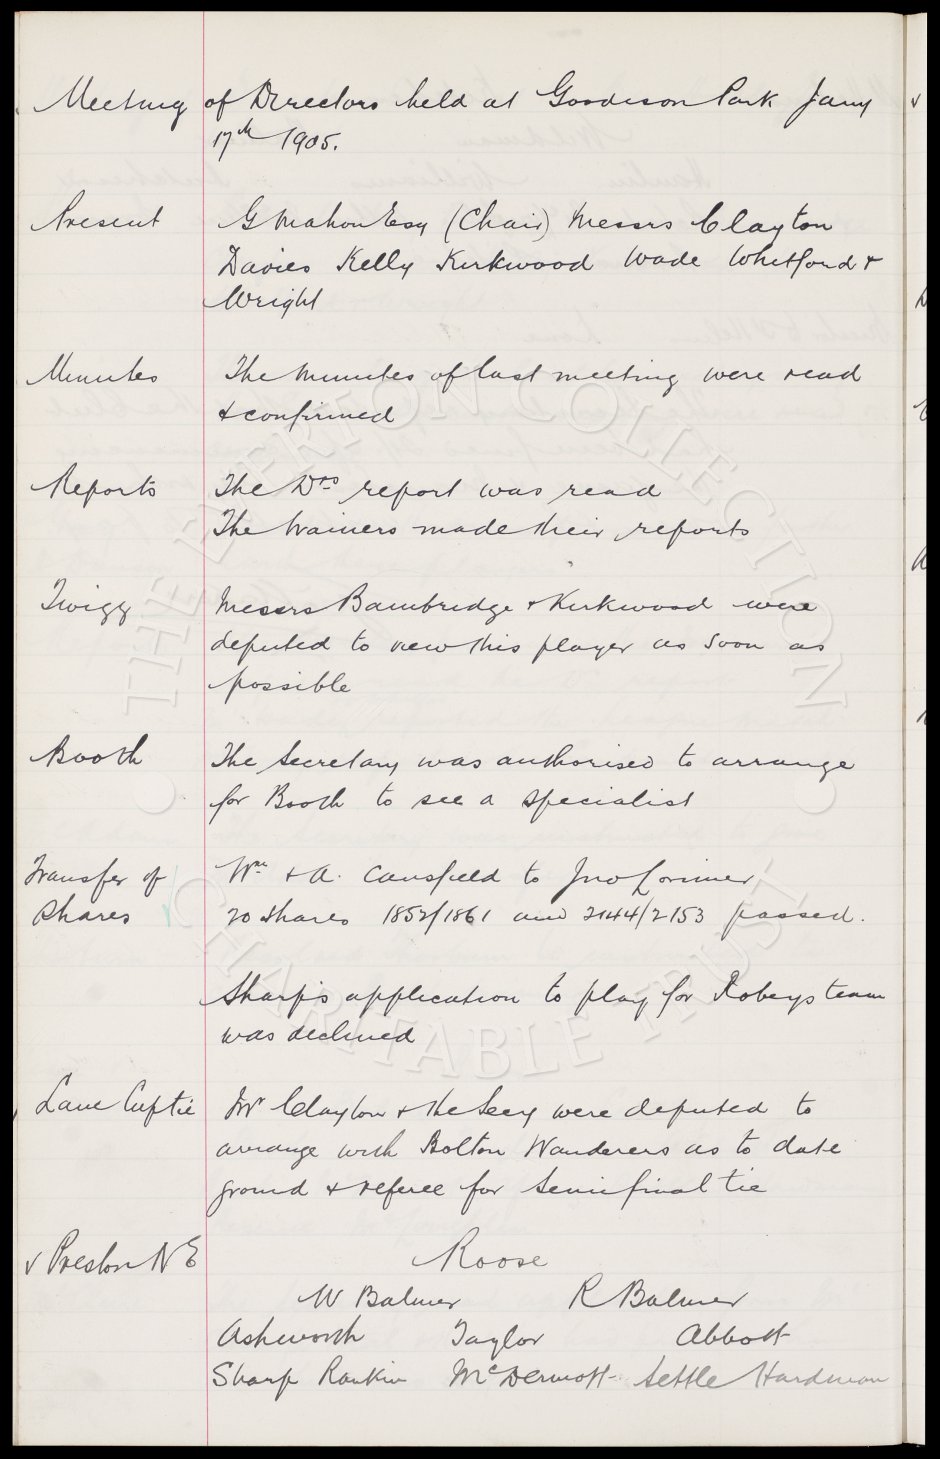 Meeting of Directors held at Goodison Park Jany
17th 1905.
Present G Mahon Esq (Chair) Messrs Clayton
Davies Kelly Kirkwood Wade Whitford &
Wright
Minutes The minutes of last meeting were read
& confirmed
Reports The Drs report was read
The trainers made their reports
Twigg Messrs Bainbridge & Kirkwood were
deputed to view this player as soon as
possible
Booth The Secretary was authorised to arrange
for Booth to see a specialist
Transfer of Wm & A. Cansfield to Jno Lorimer
Shares 20 shares 1852/1861 and 2144/2153 passed.
Sharp's application to play for Robeys team
was declined
Lanc Cuptie Mr Clayton & the Secy were deputed to
arrange with Bolton Wanderers as to date
ground & referee for Semifinal tie
v Preston N E Roose
W Balmer R Balmer
Ashworth Taylor Abbott
Sharp Rankin McDermott Settle Hardman
THE EVERTON COLLECTION
CHARITABLE TRUST